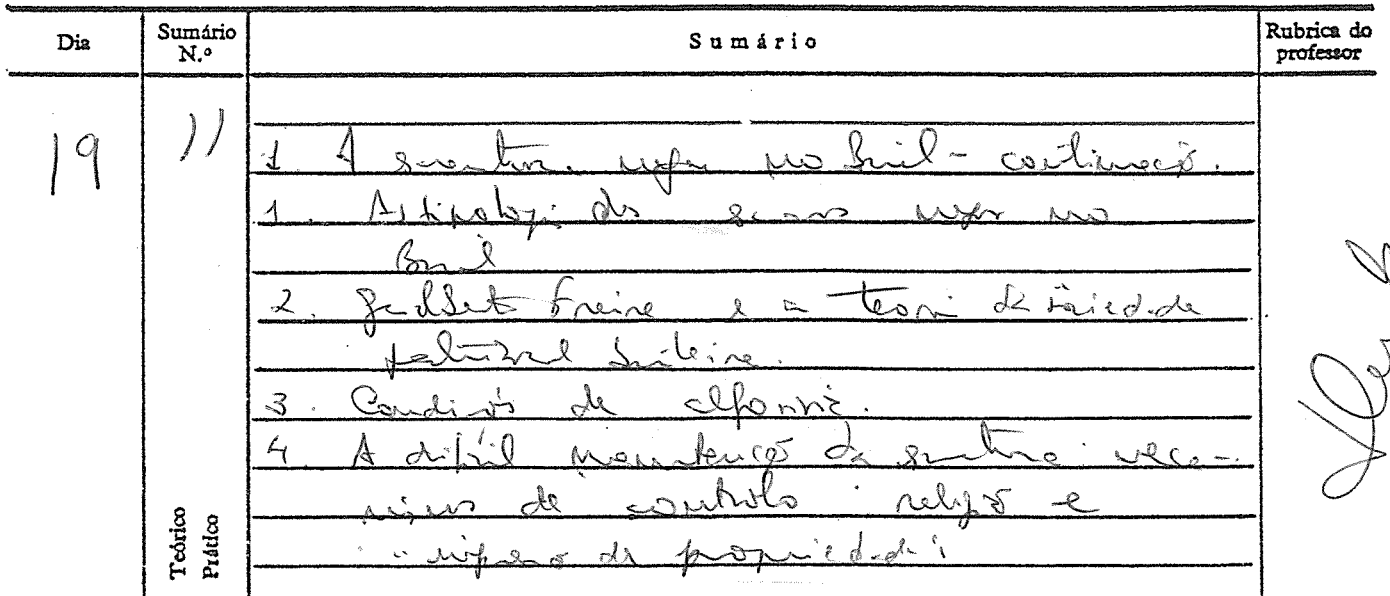 Dia
Sumário N.º
Sumário
Rubrica do professor
19
11
1. A escravatura negra no Brasil - continuação.
1. A tipologia dos escravos negros no
Brasil
2. Gilberto Freire e a teoria da sociedade
patriarcal brasileira.
3. Condições de alforria.
4. A difícil manutenção da escravatura: meca-
nismos de controlo: religião e
de propriedade
Teórico
Prático